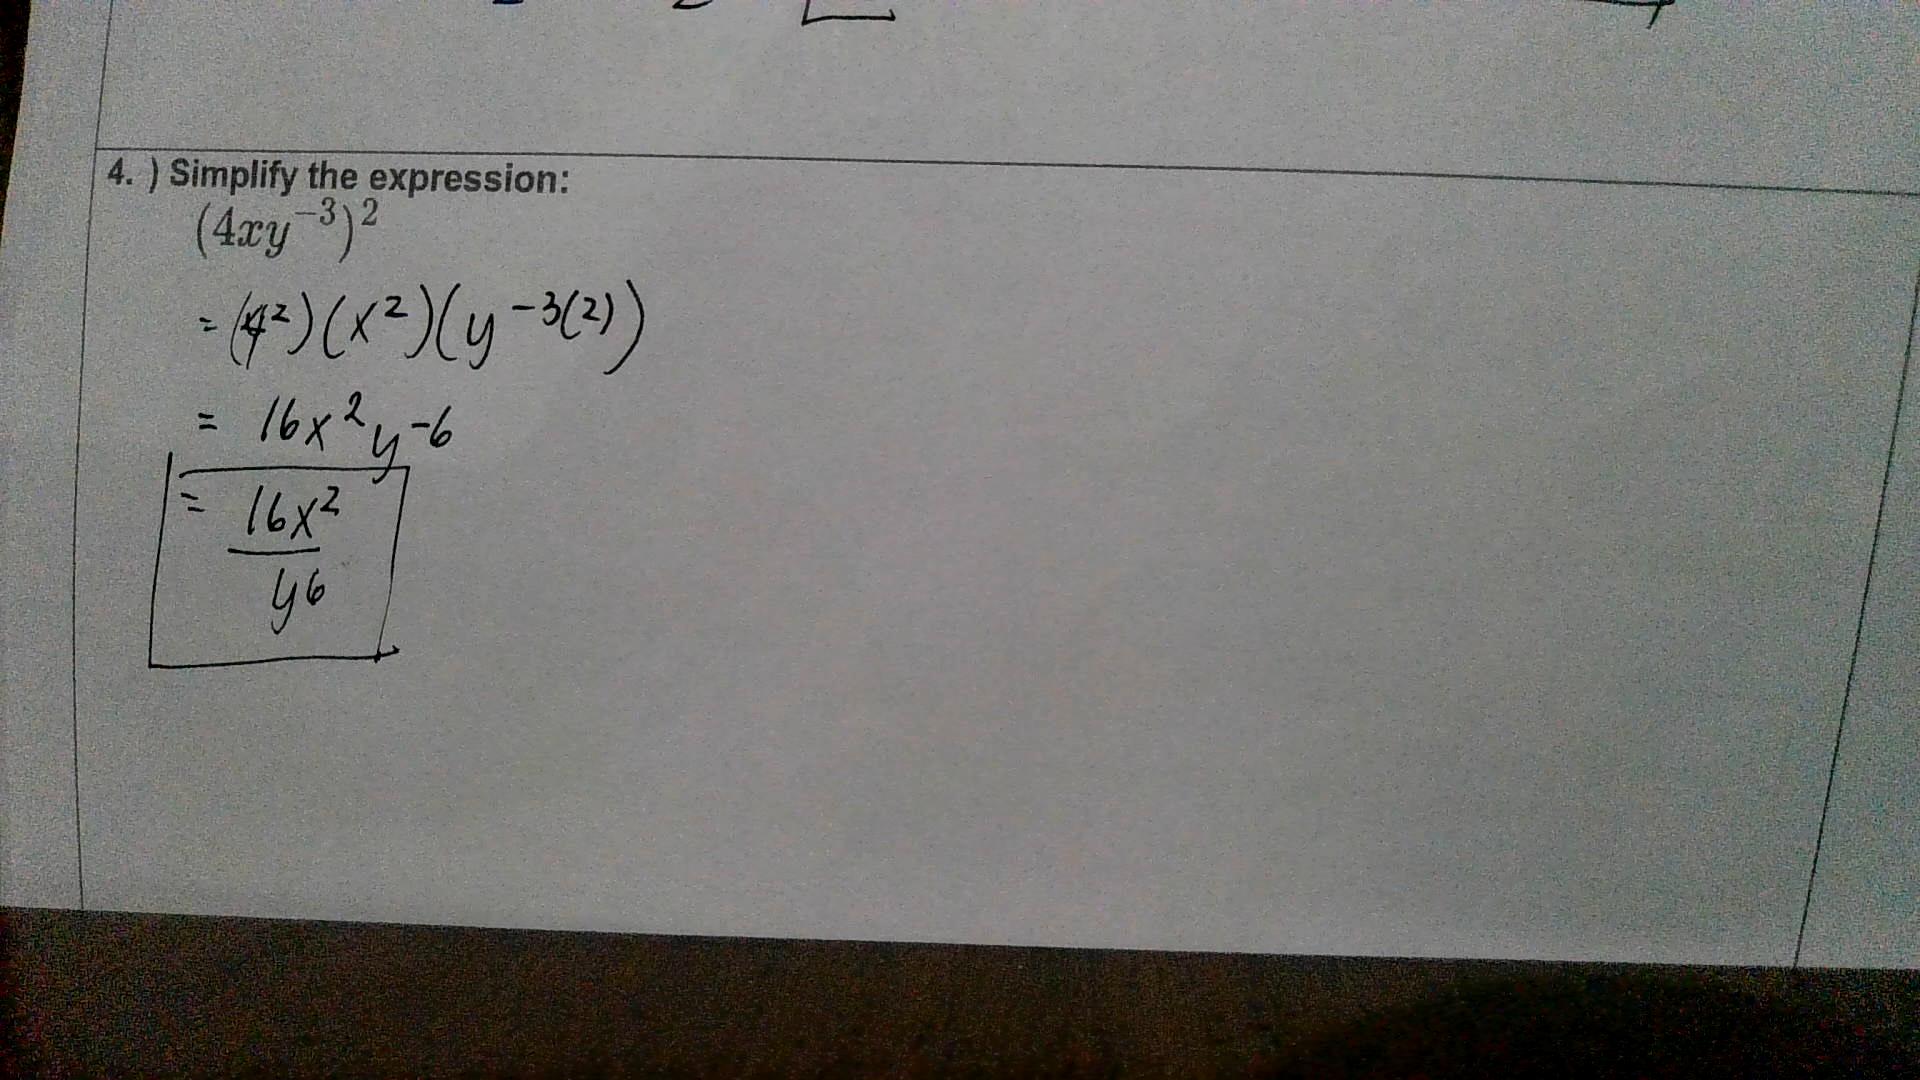 4. ) Simplify the expression:
(4xy⁻³)²
= (4²)(x²)(y⁻³⁽²⁾)
= 16x²y⁻⁶
= 16x²
y6